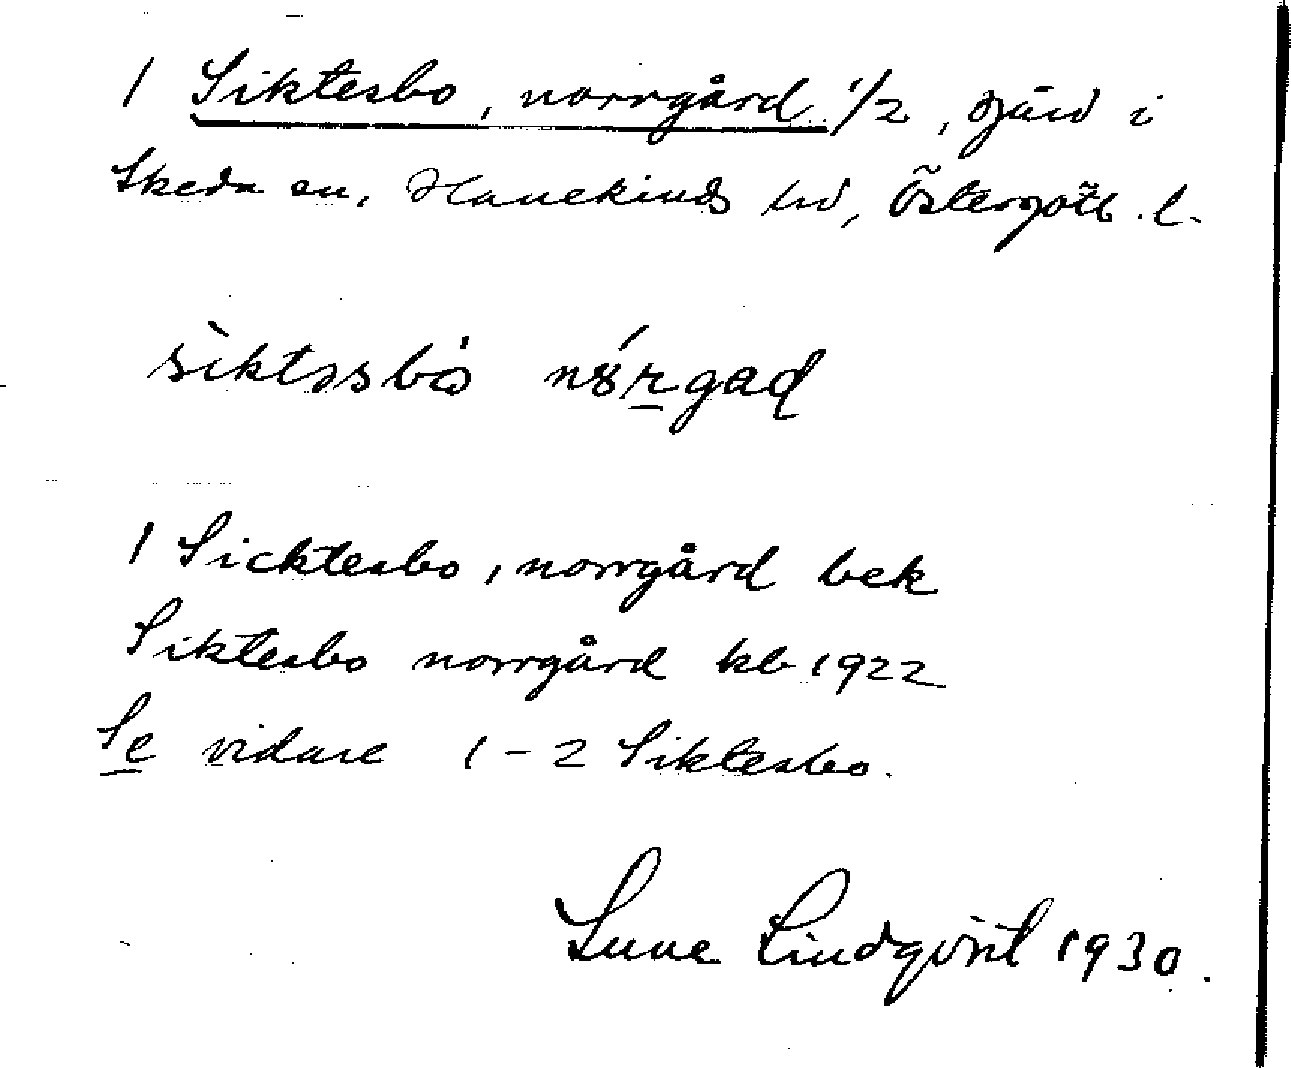 1 Siktesbo, norrgård 1/2, gård i
Skeda sn, Hanekinds hd, Östergötl. l.
sìktəsbò nórgad
1 Sicktesbo, norrgård bek
Siktesbo norrgård kb 1922
Se vidare 1-2 Siktesbo.
Sune Lindqvist 1930.